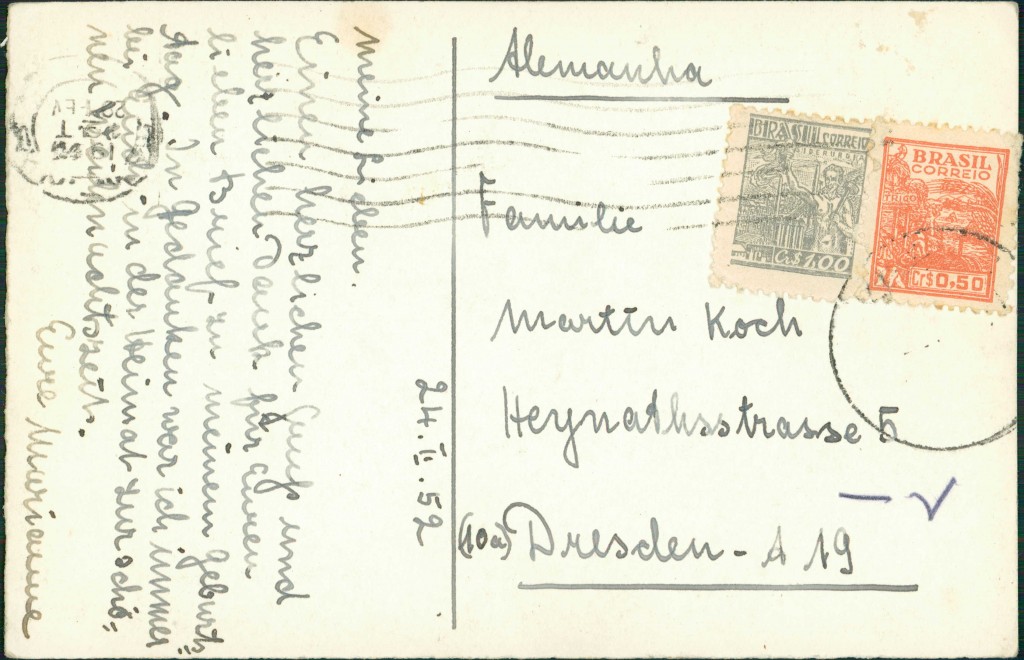 Meine Lieben.
Einen herzlichen Gruß und
herzlichen Dank für Euren
lieben Brief zu meinem Geburts=
tag. In Gedanken war ich immer
bei Euch in der Heimat zur schö=
nen Weihnachtszeit.
Eure Marianne
24. II. 52
Alemanha
Familie
Martin Koch
Heynathsstrasse 5
(10a) Dresden - A 19
BRASIL CORREIO
SIDERURGIA
Cr.$ 1,00
BRASIL
CORREIO
TRIGO
Cr$ 0,50